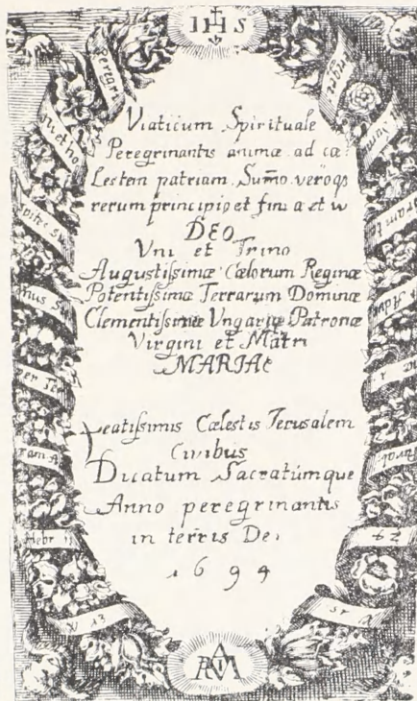 IHS
Viaticum Spirituale
Peregrinantis animæ ad cæ-
lestem patriam. Sum̃o veróqȝ
rerum principio et fini α et ω
DEO
Vni et Trino
Augustissimæ Cælorum Reginæ
Potentissimæ Terrarum Dominæ
Clementissimæ Vngariæ Patronæ
Virgini et Matri
MARIAE
Beatissimis Cælestis Jerusalem
Civibus
Dicatum Sacratúmque
Anno peregrinantis
in terris Dei
1694
Hebr 11
V 13